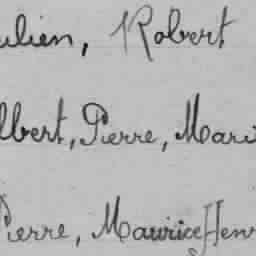 ulien, Robert
lbert, Pierre, Mari
Pierre, Maurice Henr